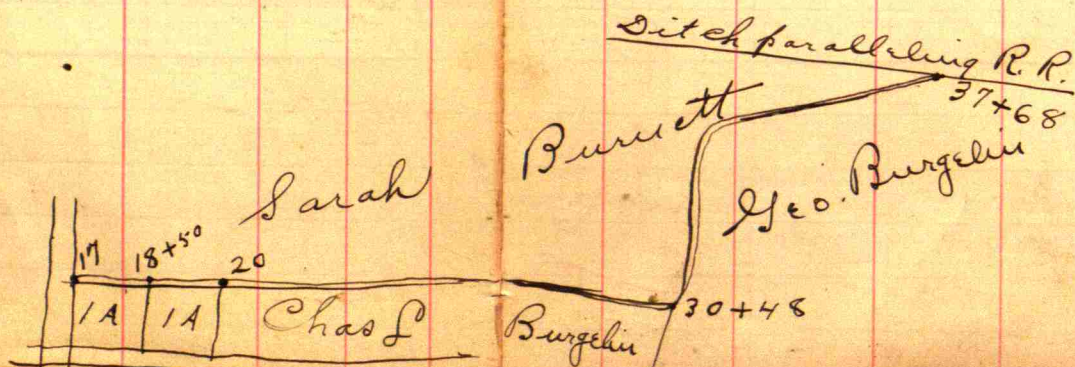 Ditch paralleling R. R.
37+68
Sarah Burnett
Geo. Burgelin
17
18+50
20
1A
1A
Chas L Burgelin
30+48